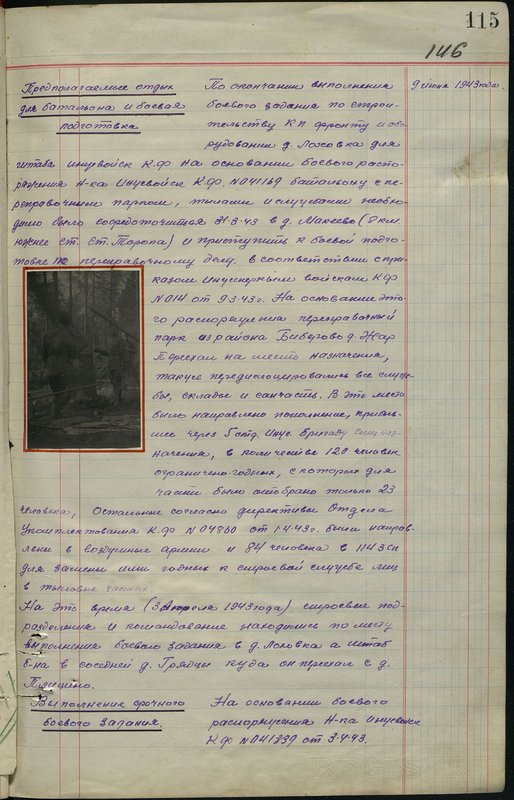 115
146
Предполагаемые отдых
для батальона и боевая
подготовка
По окончании выполнения
боевого задания по строи-
тельству КП фронту и обо-
рудовании д. Лоховка для
9 июня 1943 года.
штаба инжвойск К.Ф. на основании боевого распо-
ряжения Н-ка Инжвойск К.Ф. №041169 батальону с пе-
реправочным парком, тылами и службами необхо-
димо было сосредоточиться 31-3-43 в д. Макеево (8 км
южнее ст. ст. Торопа) и приступить к боевой подго-
товке по переправочному делу. В соответствии с при-
казом инженерным войскам К.Ф
№014 от 9-3-43 г. На основании это-
го распоряжения переправочный
парк из района Биберово д. Жар
Переехал на место назначения,
также передислоцировались все служ-
бы, склады и санчасть. В это место
было направлено пополнение, прибыв-
шее через 5 отд. Инж. бригаду спец наз-
начения, в количестве 120 человек
ограничено-годных, с которых для
части было отобрано только 23
человека, Остальные согласно директивы Отдела
Укомплектования К.Ф №04860 от 1-4-43 г. были направ-
лены в воздушные армии и 84 человека в 114 З сп
для замены ими годных к строевой службе лиц
в тыловых частях.
На это время (3 Апреля 1943 года) строевые под-
разделения и командование находились по месту
выполнения боевого задания в д. Лоховка а штаб
б-на в соседней д. Грядцы куда он переехал с д.
Плащино.
Выполнение срочного
боевого задания.
На основании боевого
распоряжения Н-ка инжвойск
К.Ф №041339 от 3-4-43.